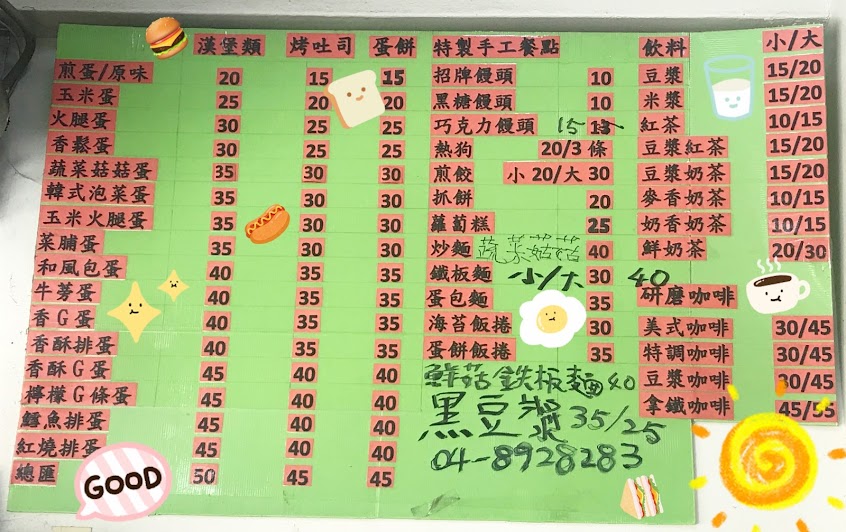 漢堡類 烤吐司 蛋餅
煎蛋/原味 20 15 15
玉米蛋 25 20 20
火腿蛋 30 25 25
香鬆蛋 30 25 25
蔬菜菇菇蛋 35 30 30
韓式泡菜蛋 35 30 30
玉米火腿蛋 35 30 30
菜脯蛋 35 30 30
和風包蛋 40 35 35
牛蒡蛋 40 35 35
香G蛋 40 35 35
香酥排蛋 40 35 35
香酥G蛋 45 40 40
檸檬G條蛋 45 40 40
鱈魚排蛋 45 40 40
紅燒排蛋 45 40 40
總匯 50 45 45
GOOD
特製手工餐點
招牌饅頭 10
黑糖饅頭 10
巧克力饅頭 15
熱狗 20/3 條
煎餃 小 20/大 30
抓餅 20
蘿蔔糕 25
炒麵 蔬菜菇菇 40
鐵板麵 小/大 30 40
蛋包麵 35
海苔飯捲 30
蛋餅飯捲 35
鮮菇鉄板麵 40
黑豆漿 35/25
04-8928283
飲料 小/大
豆漿 15/20
米漿 15/20
紅茶 10/15
豆漿紅茶 15/20
豆漿奶茶 15/20
麥香奶茶 10/15
奶香奶茶 10/15
鮮奶茶 20/30
研磨咖啡
美式咖啡 30/45
特調咖啡 30/45
豆漿咖啡 30/45
拿鐵咖啡 45/55